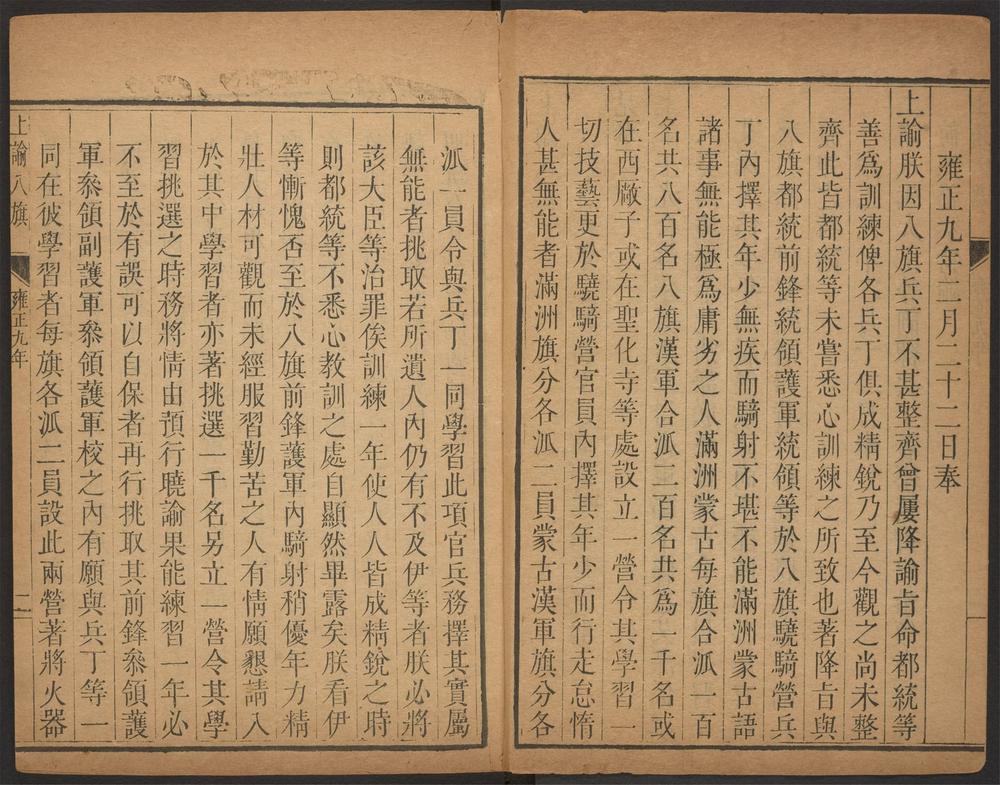 雍正九年二月二十二日奉
上諭朕因八旗兵丁不甚整齊曾屢降諭旨命都統等
善爲訓練俾各兵丁俱成精銳乃至今觀之尚未整
齊此皆都統等未嘗悉心訓練之所致也著降旨與
八旗都統前鋒統領護軍統領等於八旗驍騎營兵
丁內擇其年少無疾而騎射不堪不能滿洲蒙古語
諸事無能極爲庸劣之人滿洲蒙古每旗合派一百
名共八百名八旗漢軍合派二百名共爲一千名或
在西廠子或在聖化寺等處設立一營令其學習一
切技藝更於驍騎營官員內擇其年少而行走怠惰
人甚無能者滿洲旗分各派二員蒙古漢軍旗分各
派一員令與兵丁一同學習此項官兵務擇其實屬
無能者挑取若所遺人內仍有不及伊等者朕必將
該大臣等治罪俟訓練一年使人人皆成精銳之時
則都統等不悉心教訓之處自顯然畢露矣朕看伊
等慚愧否至於八旗前鋒護軍內騎射稍優年力精
壯人材可觀而未經服習勤苦之人有情願懇請入
於其中學習者亦著挑選一千名另立一營令其學
習挑選之時務將情由預行曉諭果能練習一年必
不至於有誤可以自保者再行挑取其前鋒叅領護
軍叅領副護軍叅領護軍校之內有願與兵丁等一
同在彼學習者每旗各派二員設此兩營著將火器
上諭八旗 雍正九年 二